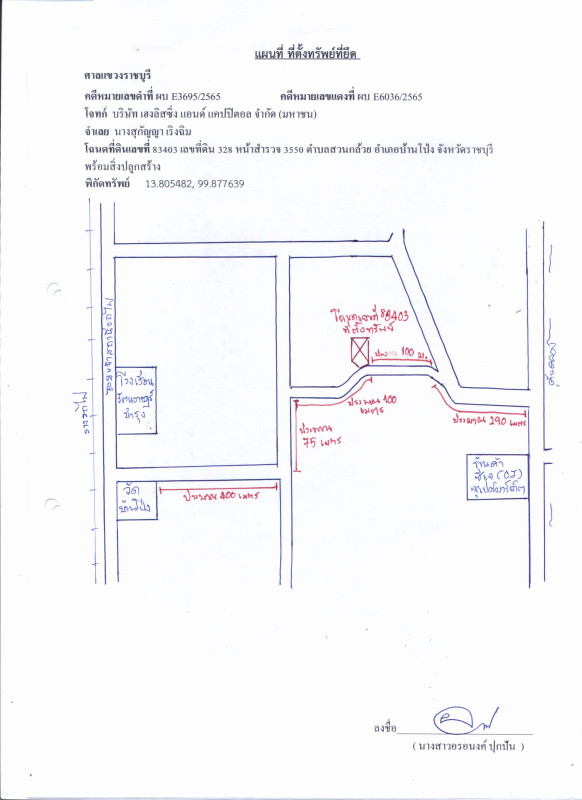 แผนที่ ที่ตั้งทรัพย์ที่ยึด
ศาลแขวงราชบุรี
คดีหมายเลขดำที่ ผบ E3695/2565 คดีหมายเลขแดงที่ ผบ E6036/2565
โจทก์ บริษัท เฮงลิสซิ่ง แอนด์ แคปปิตอล จำกัด (มหาชน)
จำเลย นางสุกัญญา เริงฉิม
โฉนดที่ดินเลขที่ 83403 เลขที่ดิน 328 หน้าสำรวจ 3550 ตำบลสวนกล้วย อำเภอบ้านโป่ง จังหวัดราชบุรี
พร้อมสิ่งปลูกสร้าง
พิกัดทรัพย์ 13.805482, 99.877639
โฉนดเลขที่ 83403
ที่ตั้งทรัพย์
ประมาณ 100 ม.
โรงเรียน
รัตนราษฎร์
บำรุง
ทางรถไฟ
ประมาณ 100
เมตร
ประมาณ 290 เมตร
ประมาณ
75 เมตร
ร้านค้า
ซีเจ (CJ)
ซุปเปอร์มาร์เก็ต
วัด
บ้านโป่ง
ประมาณ 400 เมตร
ลงชื่อ
( นางสาวอรอนงค์ ปุกปั่น )